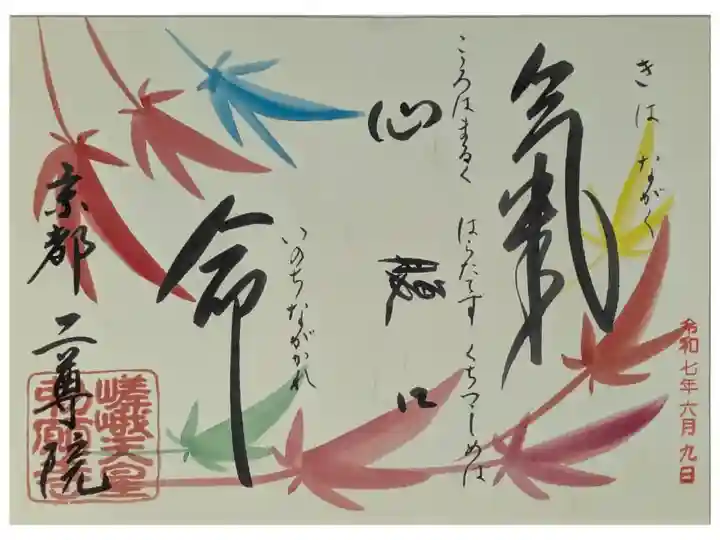 きはながく
令和七年六月九日
氣
こころはまるく はらたてず くちつつしめば
心 腹 口
いのちながかれ
命
京都 二尊院
嵯峨天皇